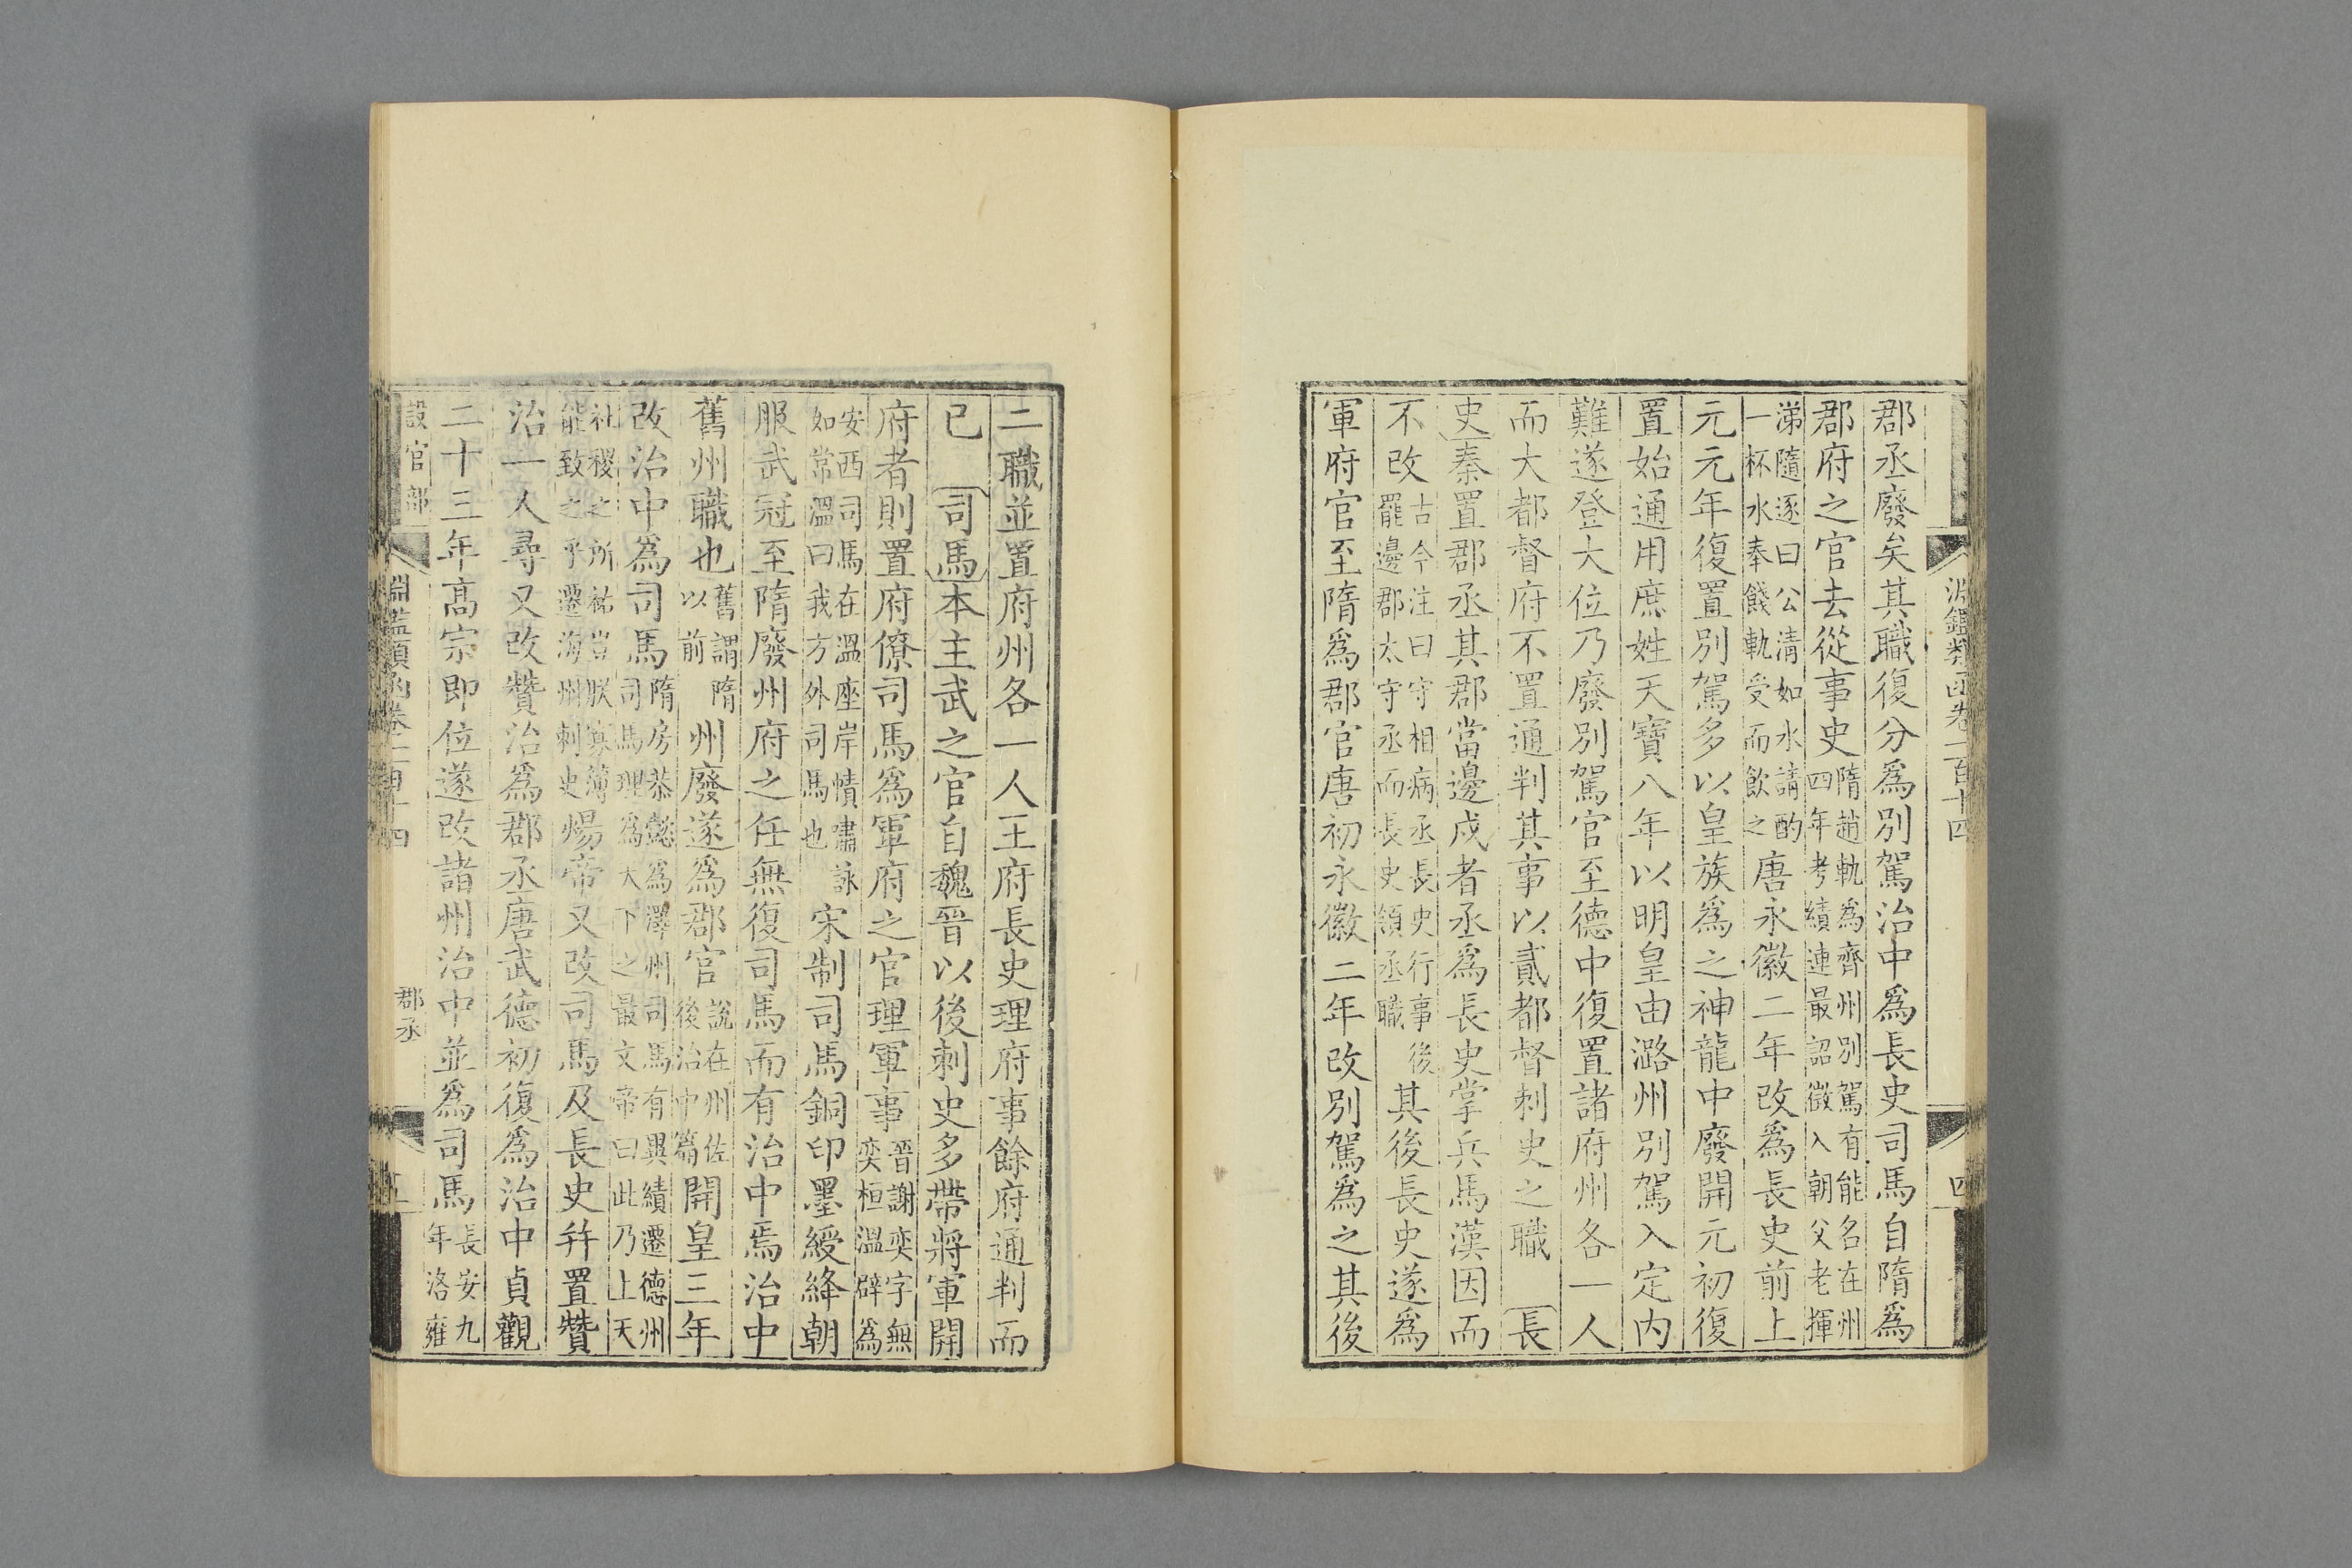 淵鑑類函卷一百十四
四
郡丞廢矣其職復分爲別駕治中爲長史司馬自隋爲
郡府之官去從事史隋趙軌為齊州別駕有能名在州四年考績連最詔徴入朝父老揮
涕隨逐曰公清如水請酌一杯水奉餞軌受而飲之唐永徽二年改爲長史前上
元元年復置別駕多以皇族爲之神龍中廢開元初復
置始通用庶姓天寶八年以明皇由潞州別駕入定内
難遂登大位乃廢別駕官至德中復置諸府州各一人
而大都督府不置通判其事以貳都督刺史之職 長
史秦置郡丞其郡當邊戍者丞爲長史掌兵馬漢因而
不改古今注曰守相病丞長史行事後罷邊郡太守丞而長史領丞職其後長史遂爲
軍府官至隋爲郡官唐初永徽二年改別駕爲之其後
二職並置府州各一人王府長史理府事餘府通判而
已 司馬本主武之官自魏晉以後刺史多帶將軍開
府者則置府僚司馬爲軍府之官理軍事晉謝奕字無奕桓溫辟為
安西司馬在溫座岸幘嘯詠如常溫曰我方外司馬也宋制司馬銅印墨綬絳朝
服武冠至隋廢州府之任無復司馬而有治中焉治中
舊州職也舊謂隋以前州廢遂爲郡官說在州佐後治中篇開皇三年
改治中爲司馬隋房恭懿為澤州司馬有異績遷德州司馬理為天下之最文帝曰此乃上天
社稷之所祐豈朕寡薄能致之乎遷海州刺史煬帝又改司馬及長史幷置贊
治一人尋又改贊治爲郡丞唐武德初復爲治中貞觀
二十三年高宗即位遂改諸州治中並爲司馬長安九年洛雍
設官部
淵鑑類函卷一百十四
郡丞
五